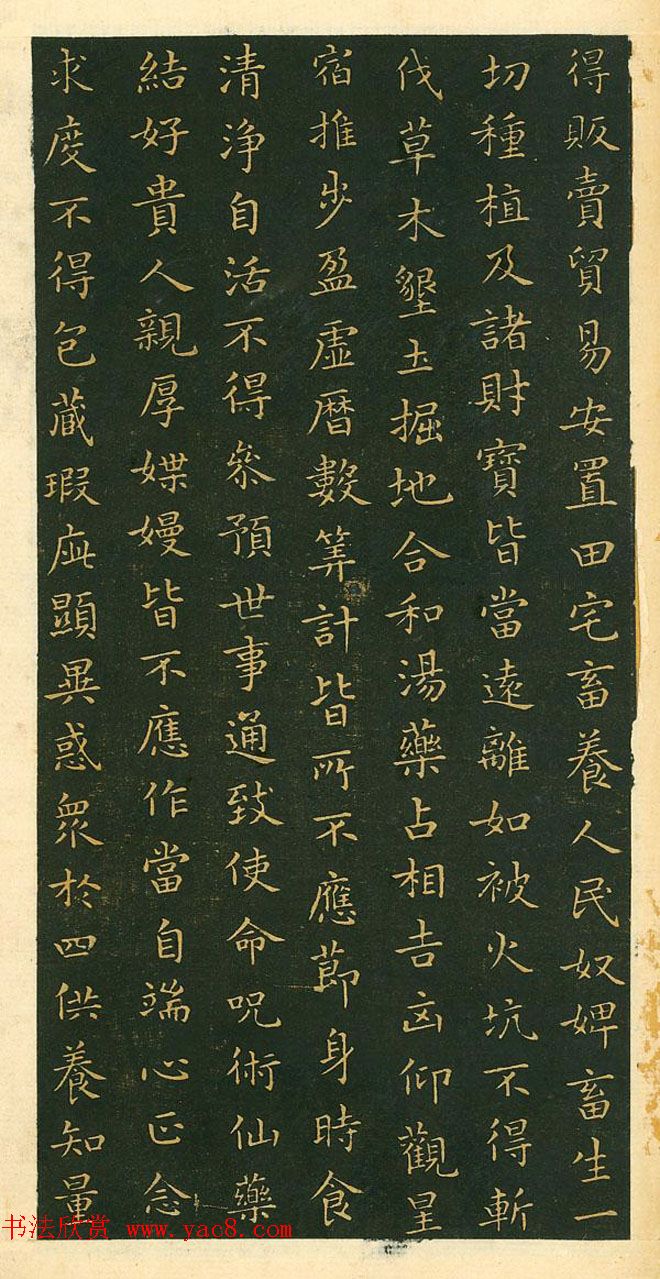 得販賣貿易安置田宅畜養人民奴婢畜生一
切種植及諸財寶皆當遠離如被火坑不得斬
伐草木墾土掘地合和湯藥占相吉凶仰觀星
宿推步盈虛曆數筭計皆所不應節身時食
清淨自活不得參預世事通致使命呪術仙藥
結好貴人親厚媟嫚皆不應作當自端心正念
求度不得包藏瑕疵顯異惑眾於四供養知量
书法欣赏 www.yac8.com